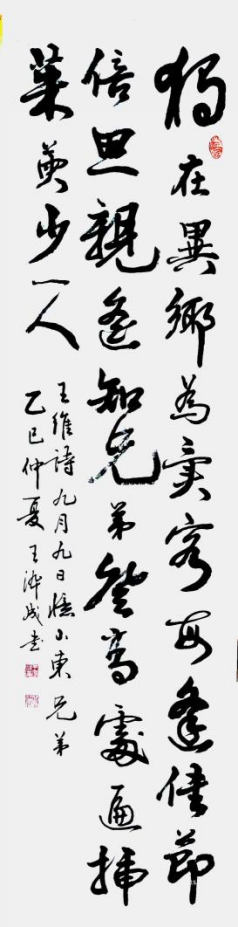 獨在異鄉為異客每逢佳節
倍思親遙知兄弟登高處遍插
茱萸少一人
王維詩九月九日憶山東兄弟
乙巳仲夏王成書